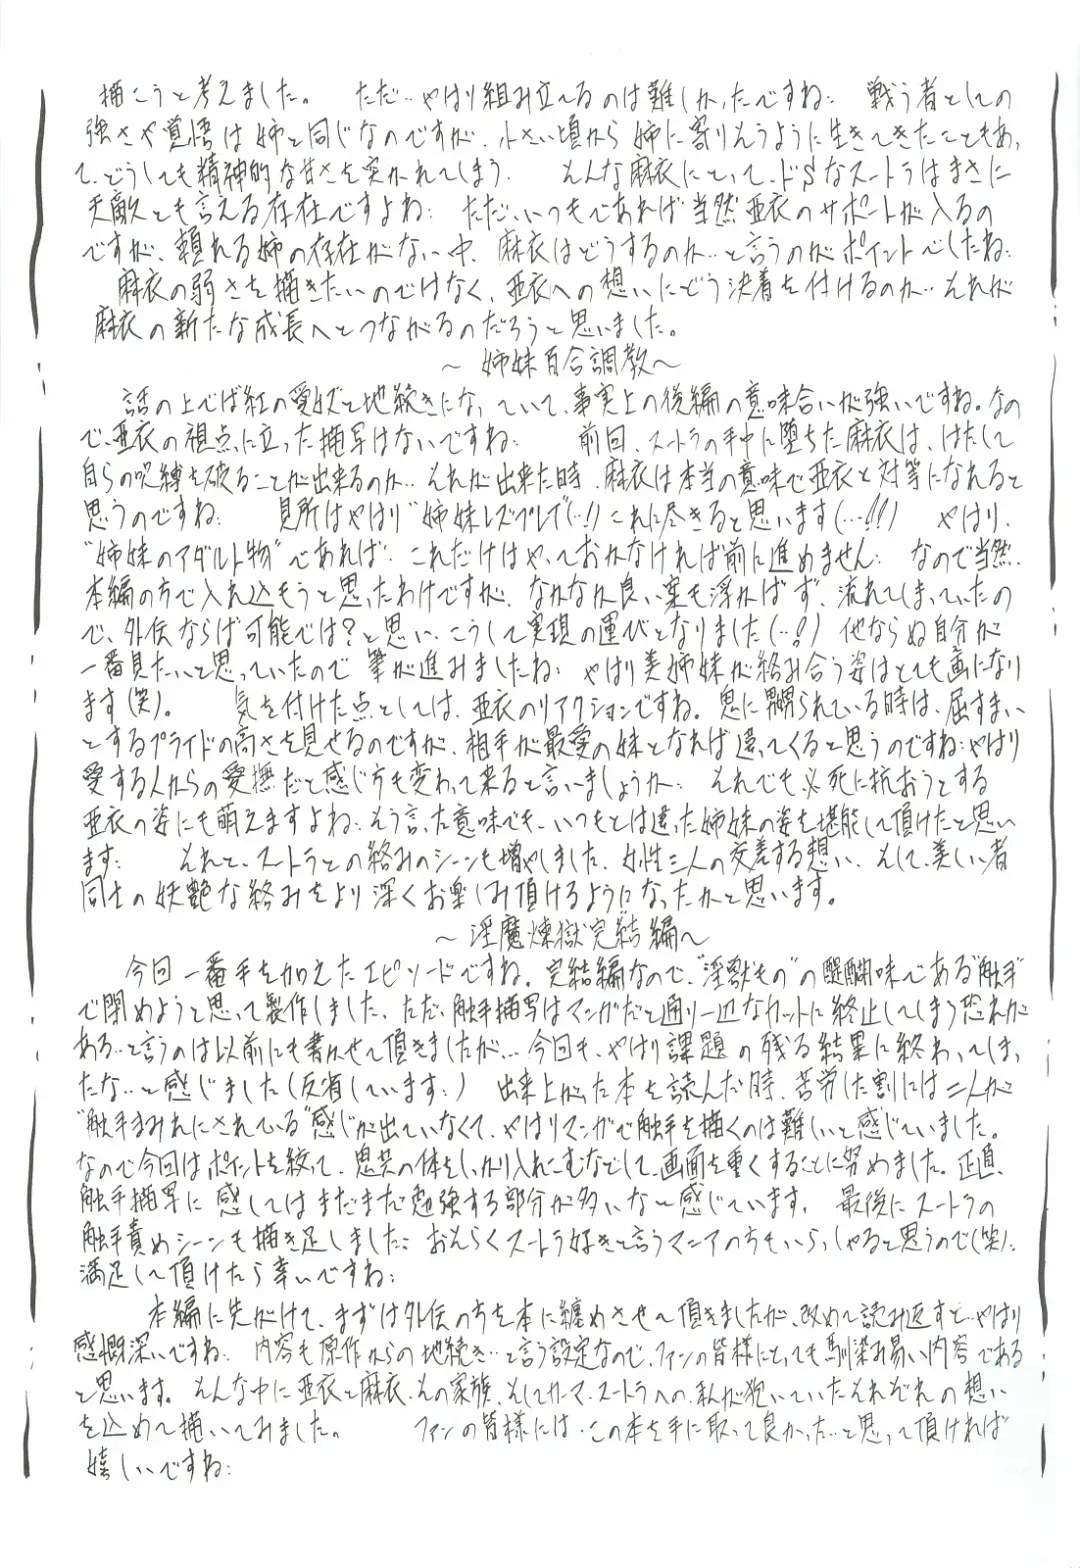 描こうと考えました。 ただ‥やはり組み立てるのは難しかったですね: 戦う者としての
強さや覚悟は姉と同じなのですが、小さい頃から姉に寄りそうように生きてきたこともあっ
て、どうしても精神的な甘さを突かれてしまう. そんな麻衣にとって、ドSなスートラはまさに
天敵とも言える存在ですよね: ただ、いつもであれば当然亜衣のサポートが入るの
ですが、頼れる姉の存在がない中、麻衣はどうするのか‥と言うのがポイントでしたね:
麻衣の弱さを描きたいのではなく、亜衣への想いにどう決着を付けるのか‥それが
麻衣の新たな成長へとつながるのだろうと思いました。
～姉妹百合調教～
話の上では紅の愛奴と地続きになっていて、事実上の後編の意味合いが強いですね。なの
で、亜衣の視点に立った描写はないですね: 前回、スートラの手中に堕ちた麻衣は、はたして
自らの呪縛を破ることが出来るのか‥それが出来た時、麻衣は本当の意味で亜衣と対等になれると
思うのですね: 見所はやはり“姉妹レズプレイ(…!!)これに尽きると思います(…!!!) やはり、
“姉妹のアダルト物”であれば: これだけはやっておかなければ前に進めません: なので当然、
本編の方で入れ込もうと思ったわけですが、なかなか良い案も浮かばず、流れてしまっていたの
で、外伝ならば可能では?と思い、こうして実現の運びとなりました(…!!) 他ならぬ自分が
一番見たいと思っていたので筆が進みましたね: やはり美姉妹が絡み合う姿はとても画になり
ます(笑)。 気を付けた点としては、亜衣のリアクションですね。鬼に嬲られている時は、屈すまい
とするプライドの高さを見せるのですが、相手が最愛の妹となれば違ってくると思うのですね:やはり
愛する人からの愛撫だと感じ方も変わって来ると言いましょうか: それでも必死に抗おうとする
亜衣の姿にも萌えますよね:そう言った意味でも、いつもとは違った姉妹の姿を堪能して頂けたと思い
ます: それと、スートラとの絡みのシーンも増やしました、女性三人の交差する想い、そして、美しい者
同士の妖艶な絡みをより深くお楽しみ頂けるようになったかと思います。
～淫魔煉獄完結編～
今回一番手を加えたエピソードですね。完結編なので、“淫獣もの”の醍醐味である“触手”
で閉めようと思って製作しました、ただ、触手描写はマンガだと通り一辺なカットに終止してしまう恐れが
ある‥と言うのは以前にも書かせて頂きましたが…今回も、やはり課題の残る結果に終わってしまっ
たな‥と感じました(反省しています:) 出来上がった本を読んだ時、苦労した割には二人が
“触手まみれにされている”感じが出ていなくて、やはりマンガで触手を描くのは難しいと感じていました。
なので今回はポイントを絞って、鬼共の体をしっかり入れこむなどして、画面を重くすることに努めました。正直、
触手描写に感してはまだまだ勉強する部分が多いな～と感じています. 最後にスートラの
触手責めシーンも描き足しました:: おそらくスートラ好きと言うマニアの方もいらっしゃると思うので(笑):
満足して頂けたら幸いですね:
本編に先がけて、まずは外伝の方を本に纏めさせて頂きましたが、改めて読み返すと‥やはり
感慨深いですね: 内容も原作からの地続き‥と言う設定なので、ファンの皆様にとっても馴染み易い内容である
と思います。そんな中に亜衣と麻衣、その家族、そしてカーマ、スートラへの、私が抱いていたそれぞれの想い
を込めて描いてみました。 ファンの皆様には、この本を手に取って良かった‥と思って頂ければ
嬉しいですね: